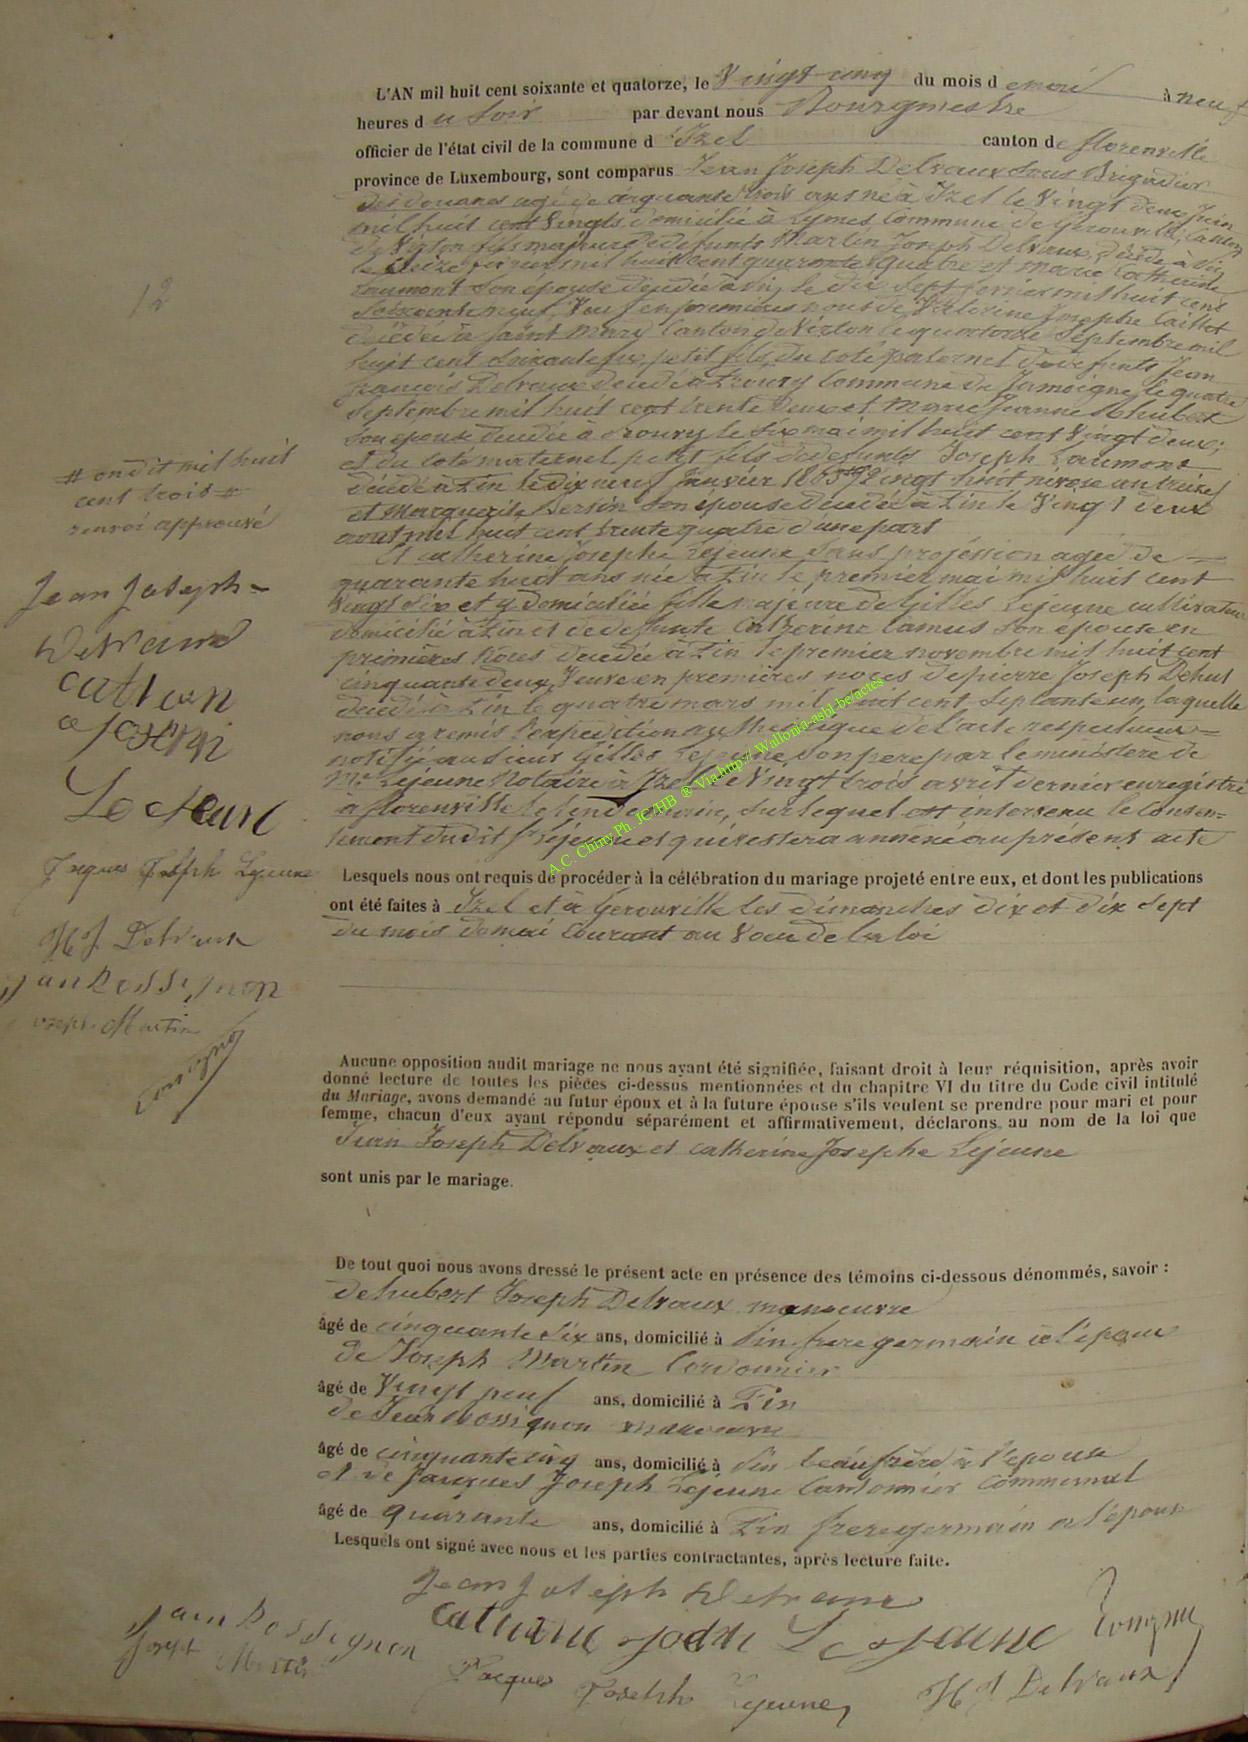 L'AN mil huit cent soixante et quatorze, le Vingt cinq du mois d e mai à neuf
heures d u Soir par devant nous Bourgmestre
officier de l'état civil de la commune d 'Izel canton de florenville
province de Luxembourg, sont comparus Jean Joseph Delvaux Sous Brigadier
des douanes agé de cinquante trois ans né à Izel le Vingt deux Juin
mil huit cent Vingt domicilié à Commune de Gérouville, Canton
de Virton fils majeur de defunts Martin Joseph Delvaux décédé à Pin
le Seize fevrier mil huit cent quarante quatre et Marie Catherine
Laumont Son epouse décédée à Pin le dix Sept fevrier mil huit cent
Soixante neuf, Veuf en premières noces de Josephe Caillet
décédée à Saint Mard Canton de Virton le quatorze Septembre mil
huit cent Soixante six, petit fils, du coté paternel de defunts Jean
françois Delvaux décédé à Prouvy Commune de Jamoigne le quatre
Septembre mil huit cent trente deux et Marie Jeanne Hubert
Son epouse décédée à Prouvy le Six mai mil huit cent Vingt deux;
et du coté maternel petit fils de defunts Joseph Laumont
décédé à Pin le dix neuf Janvier Vingt huit nivose an treize
et Marguerite Son épouse décédée à Pin le Vingt deux
aout mil huit cent trente quatre d'une part
Et catherine Josephe Lejeune Sans profession agée de
quarante huit ans née à Pin le premier mai mil huit cent
Vingt Six et y domiciliée fille majeure de Gilles Lejeune cultivateur
domicilié à Pin et de defunte Catherine Camus Son epouse en
premières Noces décédée à Pin le premier novembre mil huit cent
cinquante deux, Veuve en premières noces de pierre Joseph Dehut
décédé à Pin le quatre mars mil huit cent Septante un, laquelle
nous a remis l'expedition authentique de l'acte respectueux
notifié au dit Gilles Lejeune Son pere par le ministère de
Me Lejeune Notaire à Izel le Vingt trois avril dernier enregistré
à florenville le lendemain, Sur lequel est intervenu le Consen-
tement du dit Sr Lejeune et qui restera annexé au présent acte
# ondit mil huit
cent trois #
renvoi approuvé
Jean Joseph
Delvaux
Jacques Joseph Lejeune
H J Delvaux
Jan Rossignon
Joseph Martin
A.C. Chiny Ph. JC/HB ® Via http://Wallonia-asbl-be/actes
Lesquels nous ont requis de procéder à la célébration du mariage projeté entre eux, et dont les publications
ont été faites à Izel et à Gérouville les dimanches dix et dix Sept
du mois de mai Courant au Vœu de la loi
Aucune opposition audit mariage ne nous ayant été signifiée, faisant droit à leur réquisition, après avoir
donné lecture de toutes les pièces ci-dessus mentionnées et du chapitre VI du titre du Code civil intitulé
du Mariage, avons demandé au futur époux et à la future épouse s'ils veulent se prendre pour mari et pour
femme, chacun d'eux ayant répondu séparément et affirmativement, déclarons au nom de la loi que
Jean Joseph Delvaux et catherine Josephe Lejeune
sont unis par le mariage.
De tout quoi nous avons dressé le présent acte en présence des témoins ci-dessous dénommés, savoir :
De hubert Joseph Delvaux manoeuvre
âgé de cinquante Six ans, domicilié à Pin frere germain à l'époux
de Joseph Martin Cordonnier
âgé de Vingt neuf ans, domicilié à Pin
de Jean Rossignon manoeuvre
âgé de cinquante cinq ans, domicilié à Pin beaufrère à l'epouse
et de Jacques Joseph Lejeune Cantonnier Communal
âgé de quarante ans, domicilié à Pin frere germain à l'épouse
Lesquels ont signé avec nous et les parties contractantes, après lecture faite.
Jean Joseph Delvaux
Jan Rossignon
Joseph Martin
Jacques Joseph Lejeune
H J Delvaux